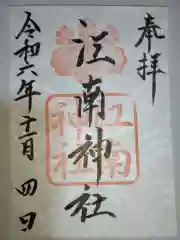 奉拝
江南神社
江南
神社
令和六年十二月四日